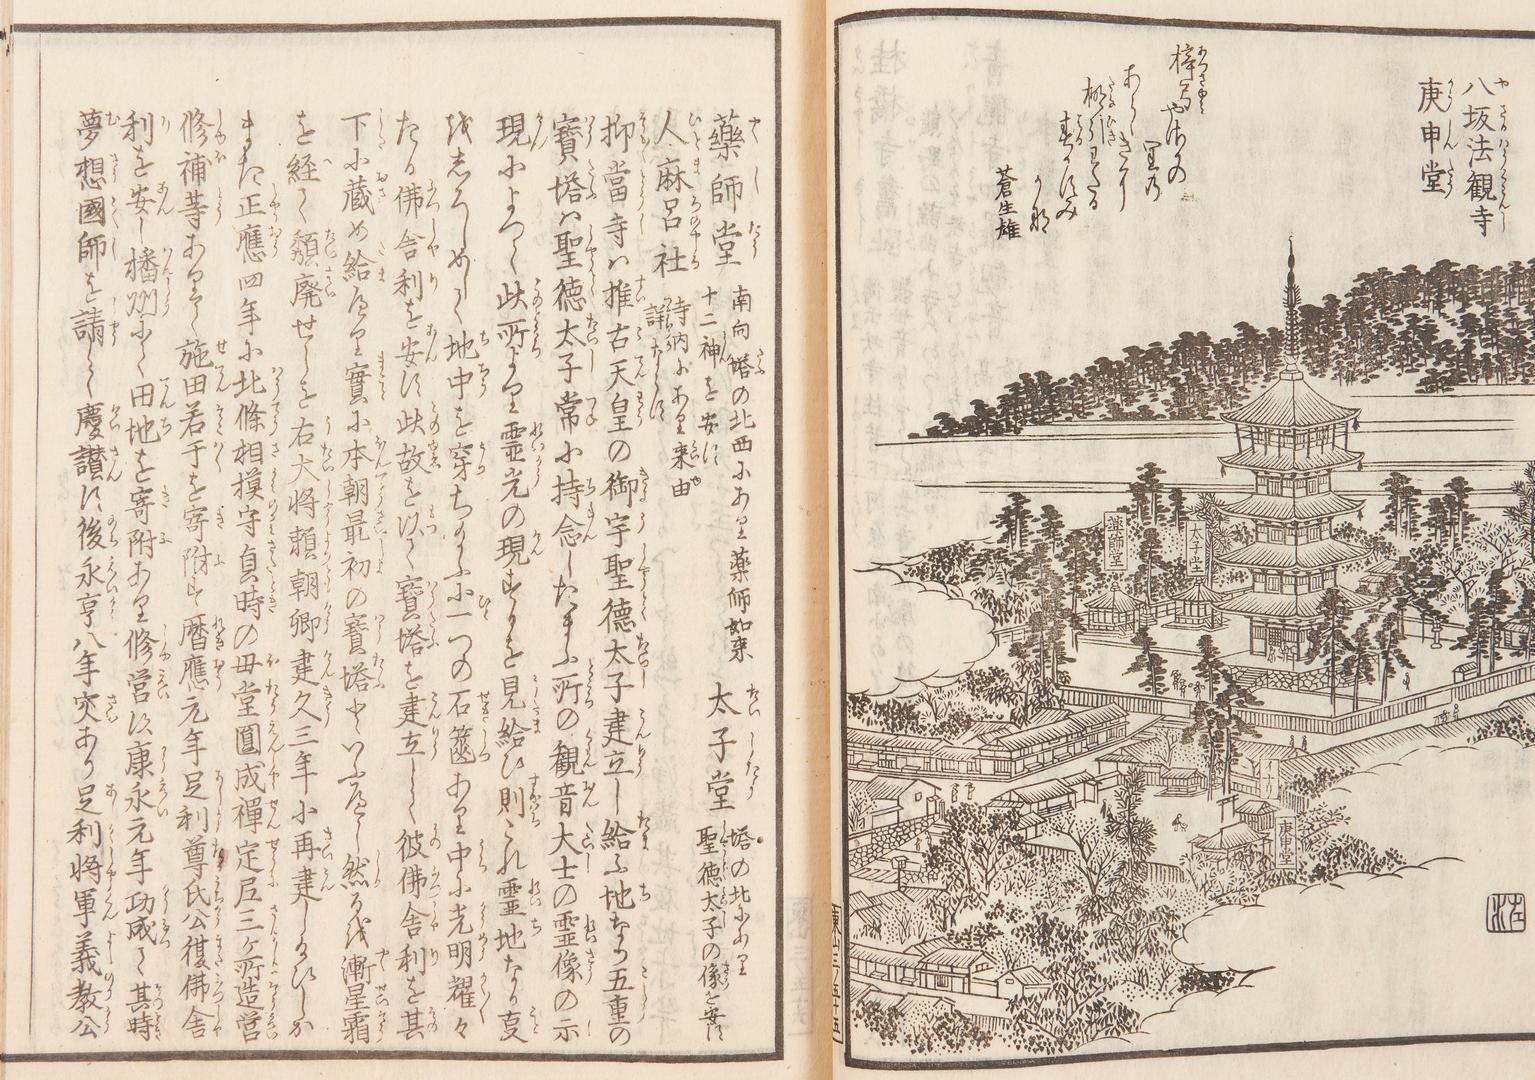 八坂法観寺
庚申堂
蒼生雄
薬師堂
太子堂
庚申堂
東山三ノ五十五
藥師堂 南向塔の北西にあり薬師如来
十二神を安ず
太子堂 塔の北にあり
聖徳太子の像を安ず
人麻呂社 寺内にあり来由
詳ならず
抑當寺ハ推古天皇の御宇聖徳太子建立し給ふ地なり五重の
寳塔ハ聖徳太子常に持念したまふ所の観音大士の霊像の示
現によつて此所より霊光の現ずるを見給ひ則これ霊地なる支
をしろしめして地中を穿ちたまふに一つの石篋あり中に光明耀々
たる佛舎利を安ず此故を以て寳塔を建立して彼佛舎利を其
下に蔵め給へり實に本朝最初の寳塔といふべし然るを漸星霜
を経て頽廃せしを右大将頼朝卿建久三年に再建したまひしか
また正應四年に北條相摸守貞時の母堂圓成禪定尼三ヶ所造営
修補等ありて施田若干を寄附す暦應元年足利尊氏公復佛舎
利を安し播州にて田地を寄附あり修営し康永元年功成て其時
夢想國師を請して慶讃す後永亨八年突あり足利将軍義教公